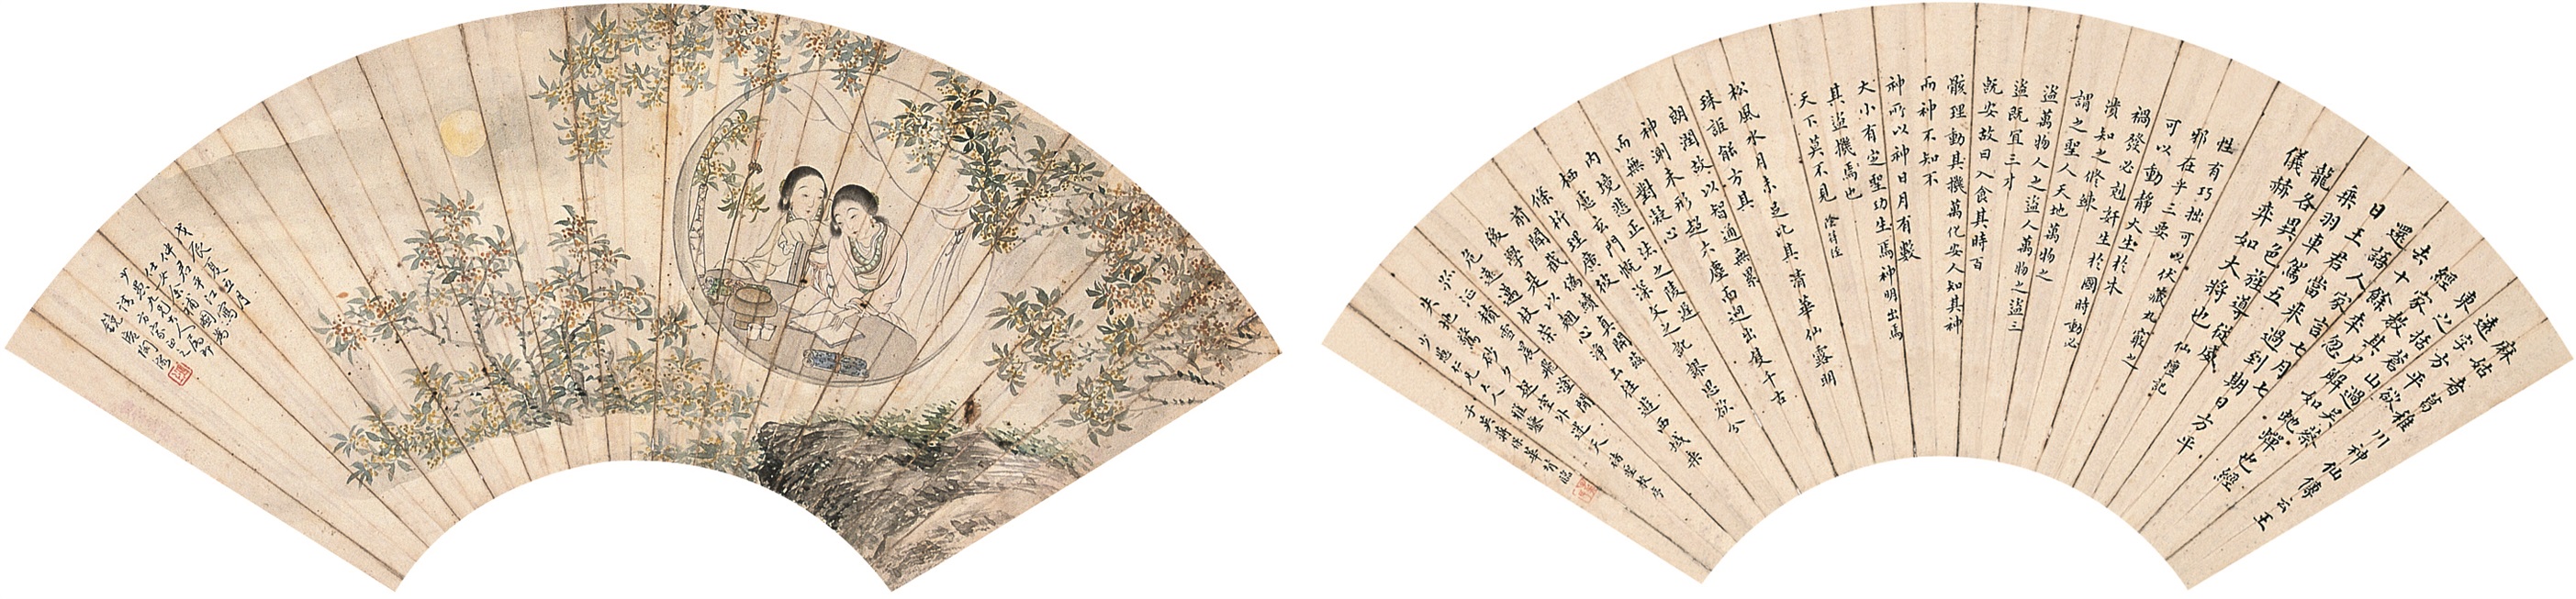 麻姑者葛稚川神仙傳云王
遠字方平欲
東之括蒼山過吳蔡
經家教其尸解如蛇蟬也經
去十餘年忽
還語家人言七月七
日王君當來過到期日方平
乘羽車駕五
龍各異色旌導從威
儀赫奕如大將也 仙壇記
性有巧拙可以伏藏九竅之
邪在乎三要
可以動靜火生於木
禍發必剋奸生於國時動必
潰知之修鍊
謂之聖人天地萬物之
盜萬物人之盜人萬物之盜三
盜既宜三才
既安故曰人食其時百
骸理動其機萬化安人知其神
而神不知不
神所以神日月有數
大小有定聖功生焉神明出焉
其盜機焉也
天下莫不見 陰符經
松風水月未足比其清華仙露明
珠詎能方其
朗潤故以智通無累
神測未形超六塵而迥出隻千古
而無對凝心
內境悲正法之陵遲
栖慮玄門慨深文之訛謬思欲分
條析理廣彼
前聞截偽續真開茲
後學是以翹心淨土往遊西域乘
危遠邁杖策
積雪晨飛塗閒
失地驚砂夕起空外迷天
少懋仁兄大人雅鑒
戊辰夏五月